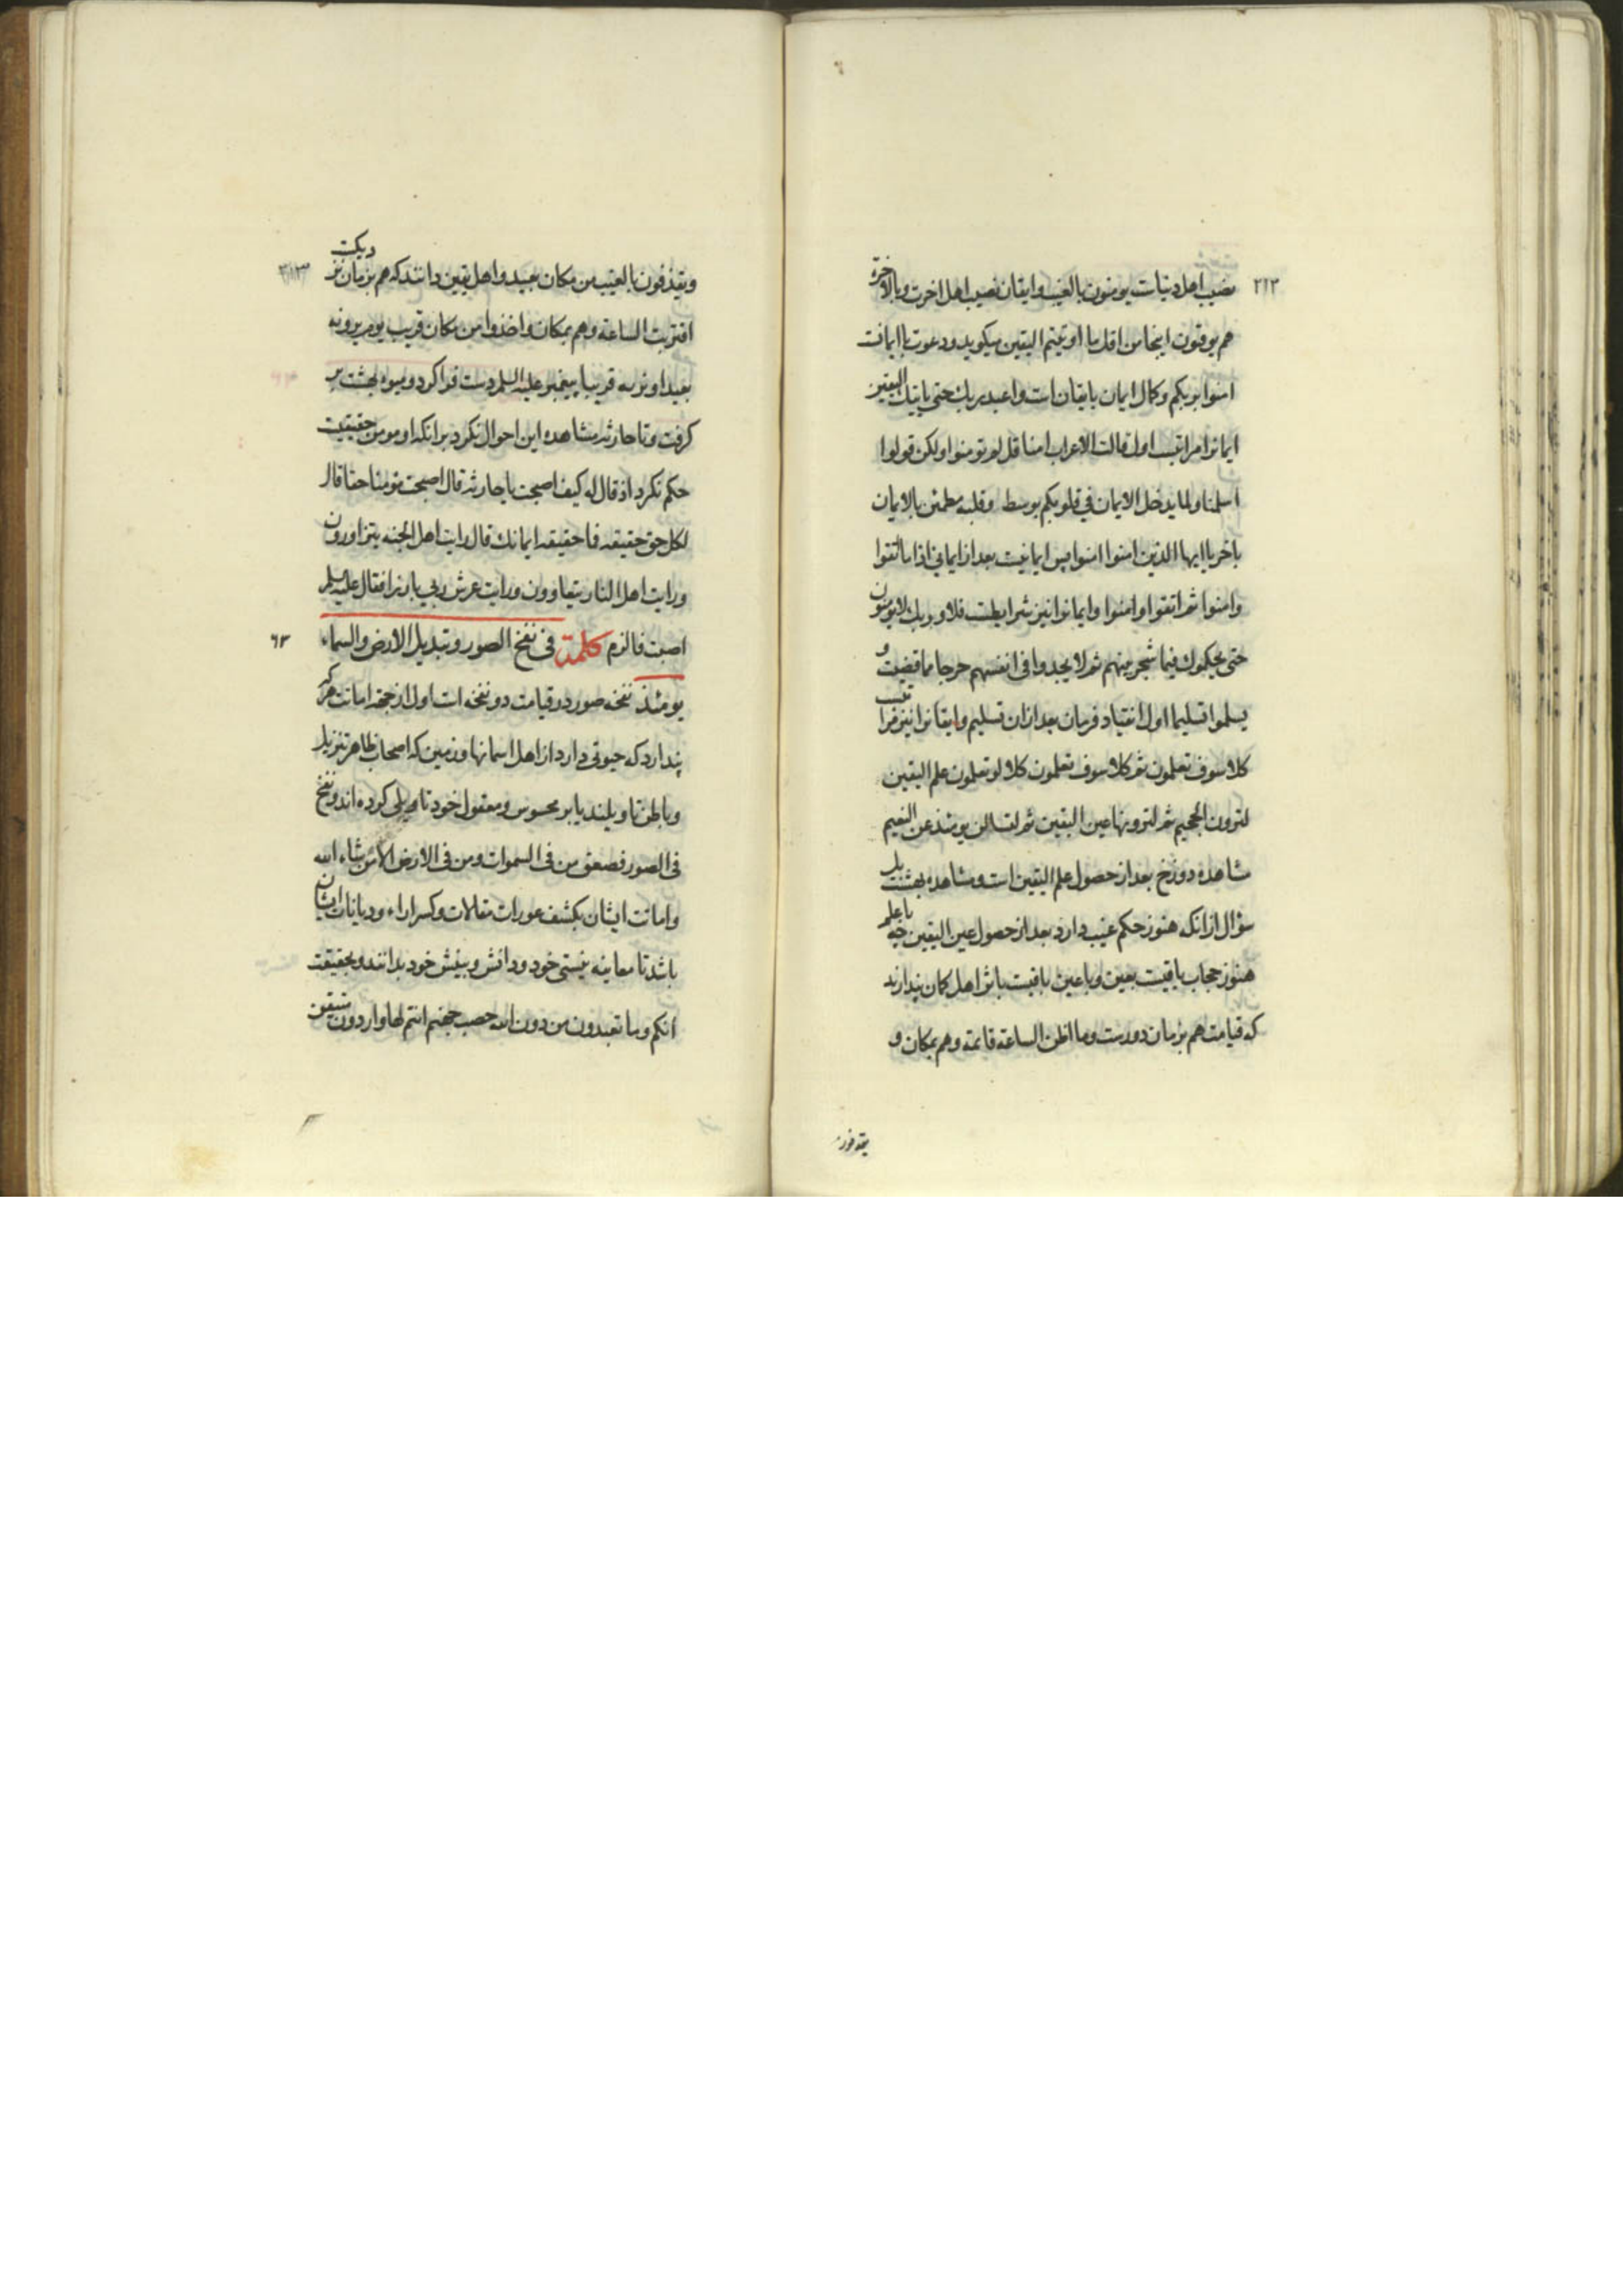 ٢١٢
نصیب اهل دنیاست یومنون بالغیب و ایقان نصیب اهل اخرت و بالاخرة
هم یوقنون اینجا من اقل ما اوتیتم الیقین میکوید و دعوت با ایمانست
امنوا بربکم و کمال ایمان بایقان است و اعبد ربك حتی یاتیك الیقین
ایمانرا مراتب اول قالت الاعراب امنا قل لم تومنوا ولکن قولوا
اسلمنا ولما یدخل الایمان فی قلوبکم بوسط وقلبه مطمئن بالایمان
باخر یا ایها الذین امنوا امنوا پس ایمانیست بعد از ایمانی اذا ما اتقوا
وامنوا ثم اتقوا وامنوا و ایمانرا نیز شرایطست فلا وربك لا یومنون
حتی یحکموك فیما شجر بینهم ثم لا یجدوا فی انفسهم حرجا مما قضیت و
یسلموا تسلیما اول انقیاد فرمان بعد ازان تسلیم و ایقانرا نیز مراتب
کلا سوف تعلمون ثم کلا سوف تعلمون کلا لو تعلمون علم الیقین
لترون الجحیم ثم لترونها عین الیقین ثم لتسالن یومئذ عن النعیم
مشاهده دوزخ بعد از حصول علم الیقین است و مشاهده بهشت بل
سؤال از انکه هنوز حکم غیب دارد بعد از حصول عین الیقین چه با علم
هنوز حجاب باقیست بعین و با عین باقیست باثر اهل کمان پندارند
که قیامت هم بزمان دورست وما اظن الساعة قائمة و هم بمکان و
یقذفون
ویقذفون بالغیب من مکان بعید و اهل یقین دانند که هم بزمان نزدیکست
اقتربت الساعة و هم بمکان واخذوا من مکان قریب یوم یرونه
بعیدا ونریه قریبا پیغمبر علیه السلم دست فرا کرد و میوه بهشت بر
کرفت و تا حارثه مشاهده این احوال نکرد برانکه او مومن حقیقیست
حکم نکرد اذ قال له کیف اصبحت یا حارثه قال اصبحت مومنا حقا قال
لکل حق حقیقه فما حقیقه ایمانك قال رایت اهل الجنه یتزاورون
ورایت اهل النار یتعاوون ورایت عرش ربی بارزا فقال علیه السلم
اصبت فالزم کلمة فی نفخ الصور وتبدیل الارض والسماء
٦٣
یومئذ نفخه صور در قیامت دو نفخه است اول از جهة اماتت هر که
پندارد که حیوتی دارد از اهل اسمانها و زمین که اصحاب ظاهر تنزیل
و باطن تاویلند یا بر محسوس و معقول خود تاویلی کرده اند ونفخ
فی الصور فصعق من فی السموات ومن فی الارض الا من شاء الله
و اماتت ایشان بکشف عورات مقالات و کسر اراء و دیانات ایشان
باشد تا معاینه نیستی خود و دانش و بینش خود بدانند و بحقیقت
انکم وما تعبدون من دون الله حصب جهنم انتم لها واردون